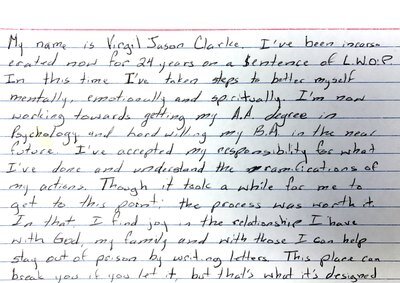 My name is Virgil Jason Clarke. I've been incarce
erated now for 24 years on a sentence of L.W.O.P
In this time I've taken steps to better myself
mentally, emotionally and spiritually. I'm now
working towards getting my A.A. degree in
Psychology and hord willing my B.A. in the near
future. I've accepted my responsibility for what
I've done and understand the ramifications of
my actions. Though it took a while for me to
get to this point; the process was worth it.
In that, I find joy in the relationship I have
with God, my family and with those I can help
stay out of prison by writing letters. This place can
break you if you let it, but that's what it's designed